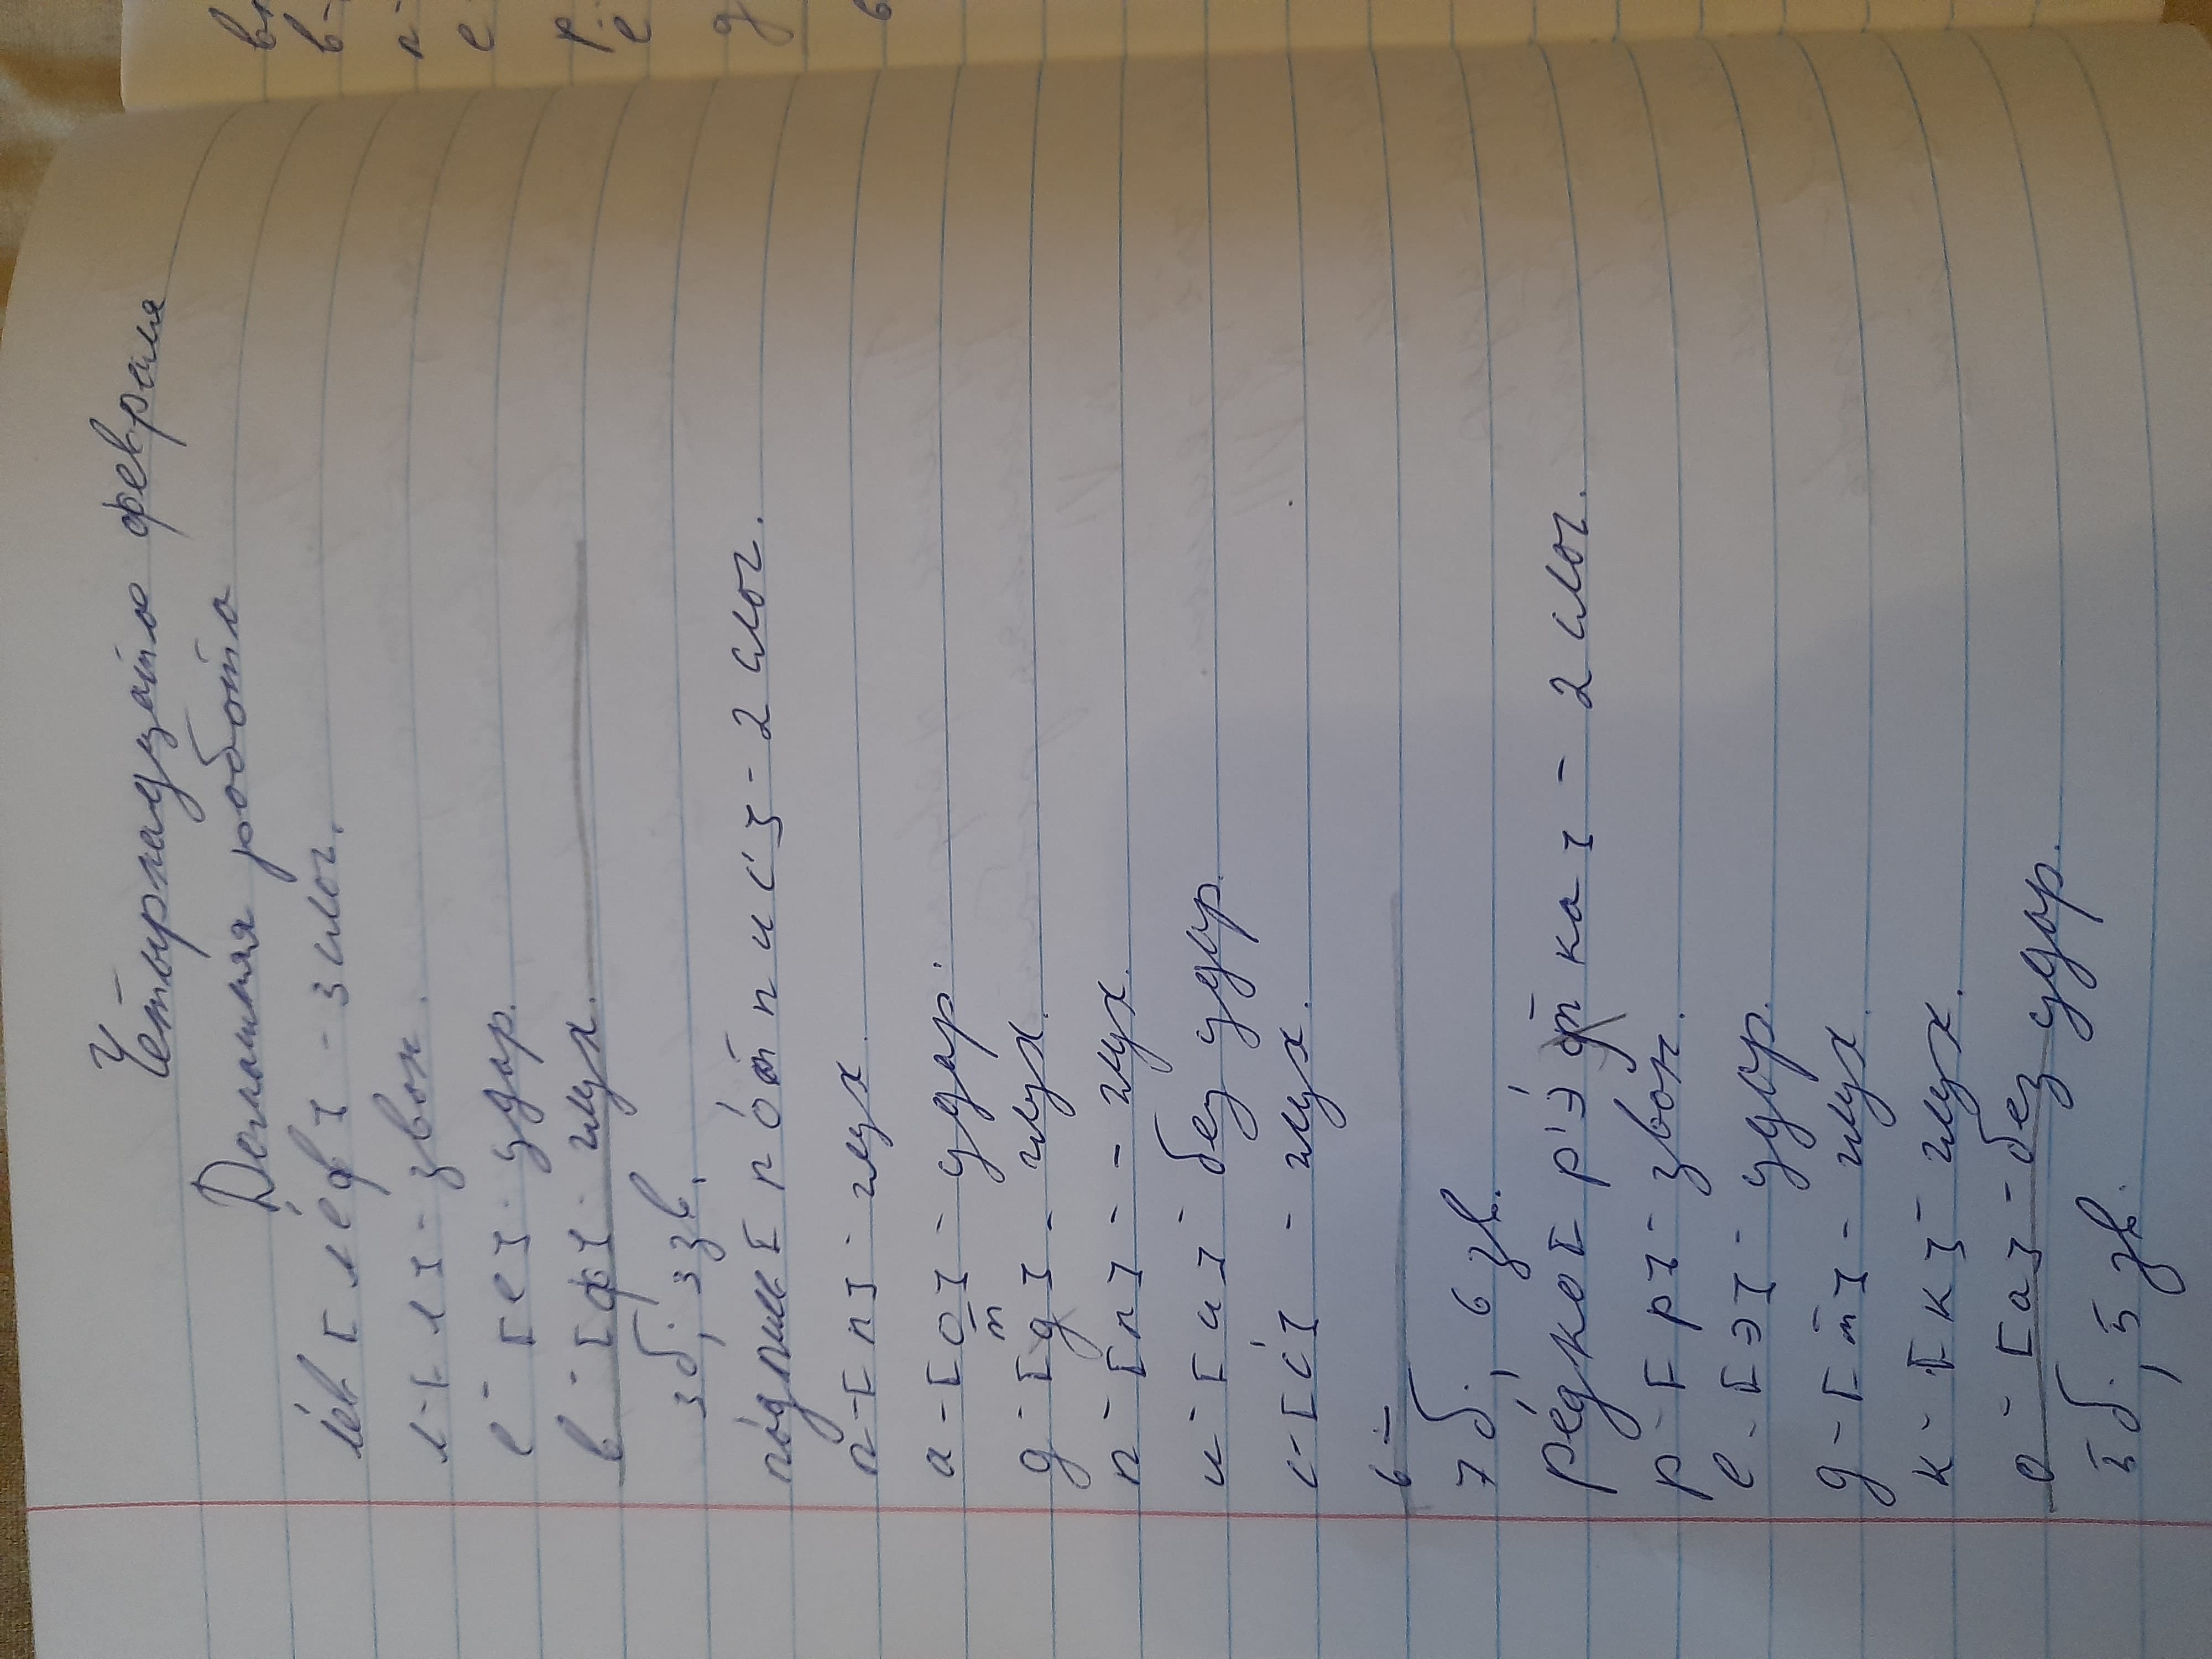 Четырнадцато февраля
Домашняя робото
лев [ лéф] - 3 слог.
л - [ л ] - звон.
е - [е] - удар.
в - [ф] - глух.
3 б., 3 зв.
подпись [ п ó т п и с'] - 2 слог.
п - [ п ] - глух
а - [о] - удар.
т
д - [д] - глух.
п - [п] - - глух.
и - [ и ] - без удар
с - [с'] - глух.
ь =
7 б., 6 зв.
рéдкое [ р'э́ т к а ] - 2 слог.
р - [ р ] - звон.
е - [э] - удар.
д - [ т ] - глух.
к - [ к ] - глух.
о - [а] - без удар.
5 б., 5 зв.